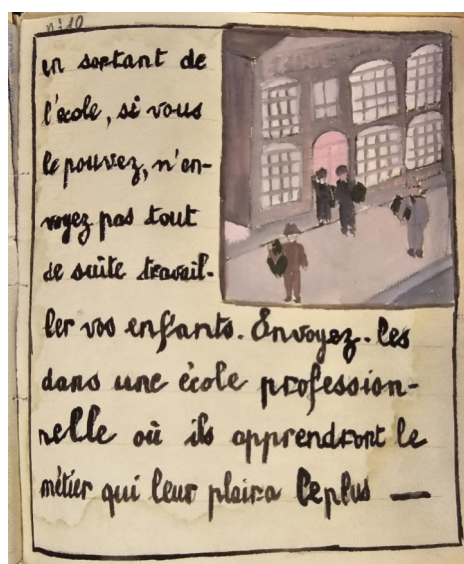 n° 10
en sortant de
l'école, si vous
le pouvez, n'en-
voyez pas tout
de suite travail-
ler vos enfants. Envoyez-les
dans une école profession-
nelle où ils apprendront le
métier qui leur plaira le plus —